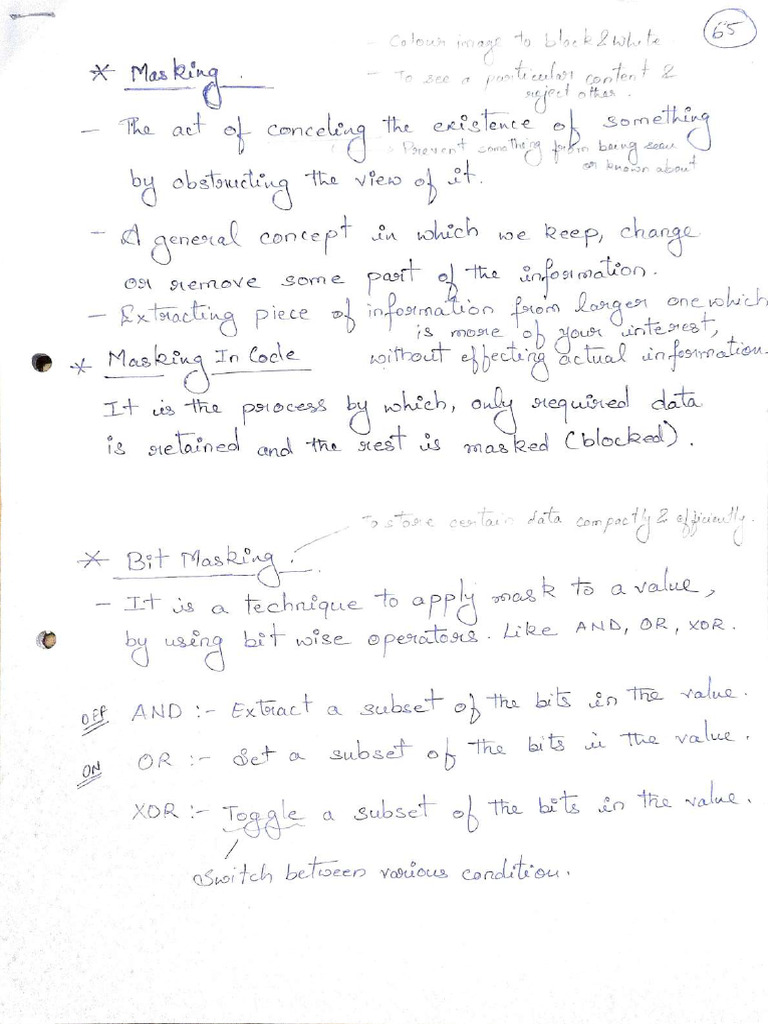 65
- Colour image to black & white
* Masking.
- To see a particular content &
reject other.
- The act of conceling the existence of something
- Prevent something from being seen
or known about
by obstructing the view of it.
- A general concept in which we keep, change
or remove some part of the information.
- Extracting piece of information from larger one which
is more of your interest,
* Masking In Code
without effecting actual information.
It is the process by which, only required data
is retained and the rest is masked (blocked).
To store certain data compactly & efficiently.
* Bit Masking.
- It is a technique to apply mask to a value,
by using bit wise operators. Like AND, OR, XOR.
OFF AND :- Extract a subset of the bits in the value.
ON OR :- Set a subset of the bits in the value.
XOR :- Toggle a subset of the bits in the value.
Switch between various condition.